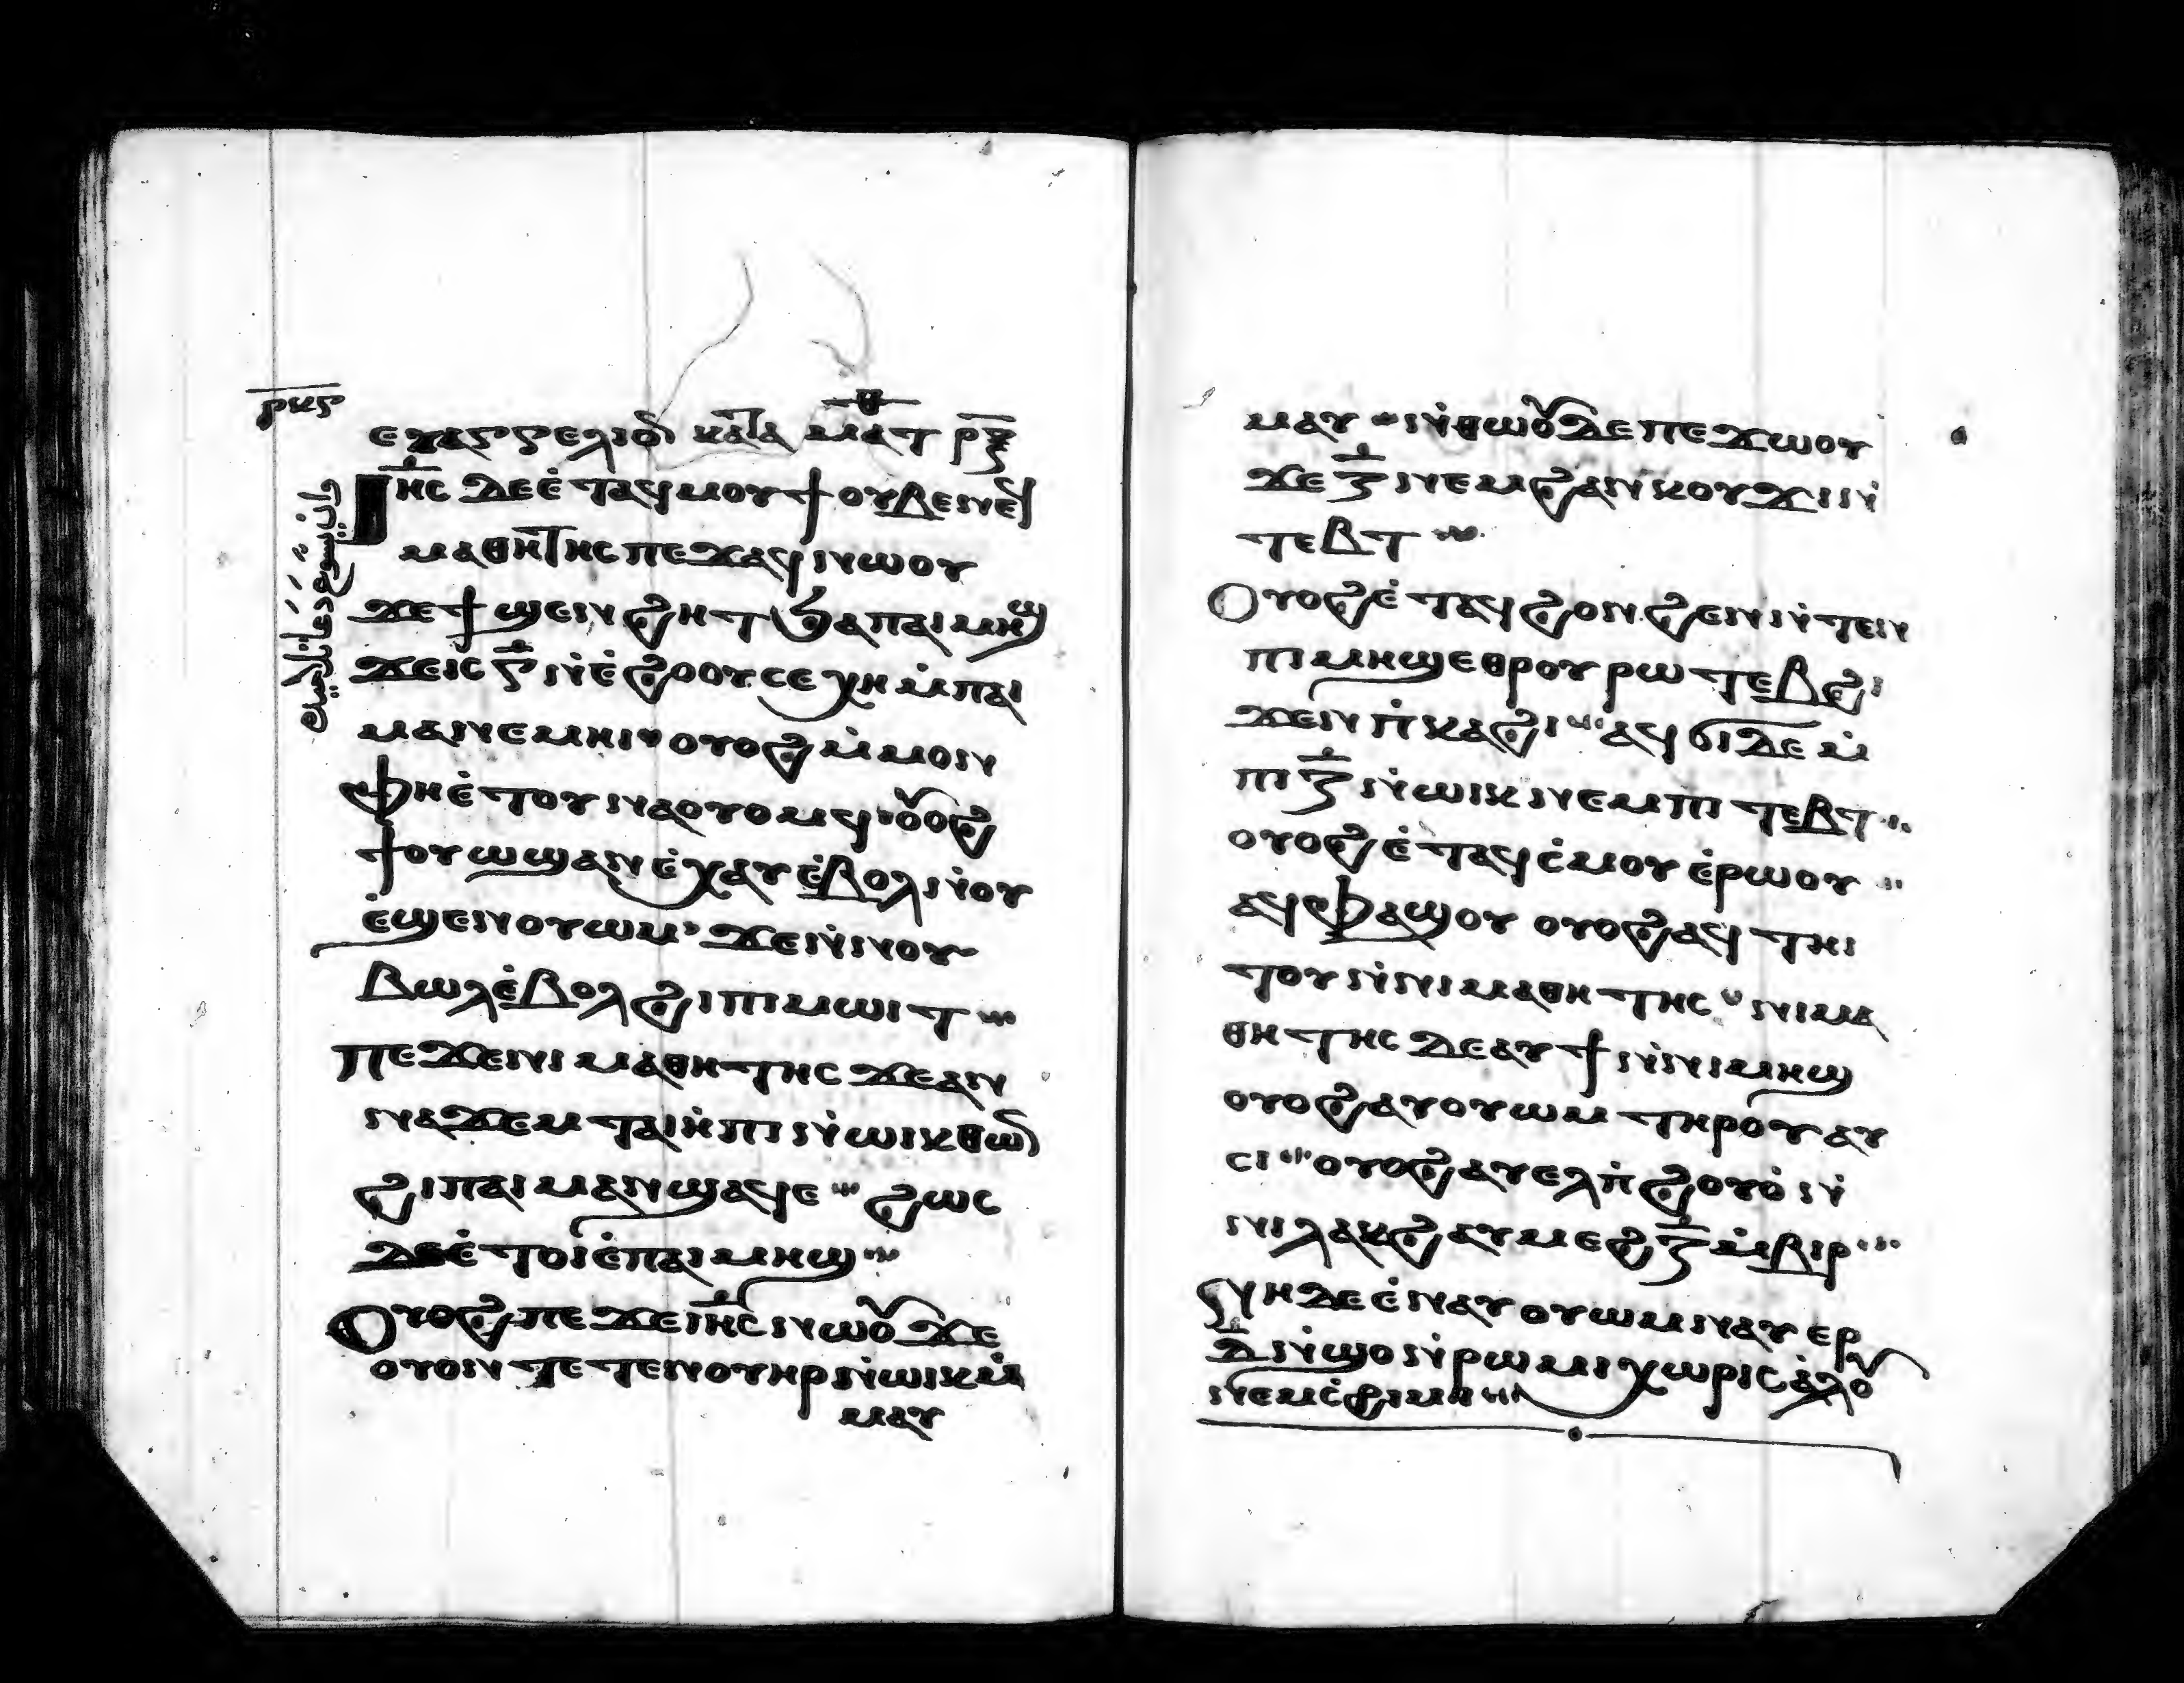 ⲣⲕⲋ
ⲉⲩⲁⲅⲅⲉⲗⲓⲟⲛ ⲕⲁⲧⲁ ⲙⲁⲧⲑ ⲣⲝ
ⲓⲏⲥ ⲇⲉ ⲉ̇ⲧⲁϥⲙⲟⲩϯ ⲟⲩⲃⲉ ⲛⲉϥ
ⲙⲁⲑⲏⲧⲏⲥ ⲡⲉϫⲁϥ ⲛⲱⲟⲩ
ϫⲉ ϯϣⲉⲛϩⲏⲧ ϧⲁ ⲡⲁⲓⲙⲏϣ
ϫⲉ ⲓⲥ ⲅ̅ ⲛ̇ⲉ̇ϩⲟⲟⲩ ⲥⲉⲭⲏ ⲙ̇ⲡⲁⲓ
ⲙⲁ ⲛⲉⲙⲏⲓ ⲟⲩⲟϩ ⲙ̇ⲙⲟⲛ
ⲫⲏ ⲉ̇ⲧⲟⲩⲛⲁⲟⲩⲟⲙϥ ⲟⲩⲟϩ
ϯⲟⲩⲱϣ ⲁⲛ ⲉ̇ⲭⲁⲩ ⲉ̇ⲃⲟⲗ ⲛ̇ⲟⲩ
ⲉ̇ϣⲉⲛ ⲟⲩⲱⲙ ϫⲉ ⲛ̇ⲛⲟⲩ
ⲃⲱⲗ ⲉ̇ⲃⲟⲗ ϩⲓ ⲡⲓⲙⲱⲓⲧ
ⲡⲉϫⲉ ⲛⲓⲙⲁⲑⲏⲧⲏⲥ ϫⲉ ⲁⲛ
ⲛⲁϫⲉⲙ ⲧⲁⲓⲏ̇ⲡⲓ ⲛ̇ⲱⲓⲕ ⲑⲱⲛ
ϩⲓ ⲡⲁⲓⲙⲁ ⲛϣⲁϥⲉ ϩⲱⲥ
ⲇⲉ ⲉ̇ⲧⲟⲓ ⲉ̇ⲡⲁⲓⲙⲏϣ
ⲟⲩⲟϩ ⲡⲉϫⲉ ⲓⲏⲥ ⲛⲱⲟⲩ ϫⲉ
ⲟⲩⲟⲛⲧⲉⲧⲉⲛ ⲟⲩⲏⲣ ⲛ̇ⲱⲓⲕ ⲙ̇ⲙⲁ
ⲙⲁⲩ
ⲙⲁⲩ ⲛ̇ⲑⲱⲟⲩ ⲇⲉ ⲡⲉϫⲱⲟⲩ
ϫⲉ ⲍ̅ ⲛⲉⲙ ϩⲁⲛⲕⲟⲩϫⲓ ⲛ̇
ⲧⲉⲃⲧ
ⲟⲩⲟϩ ⲉ̇ⲧⲁϥϩⲟⲛϩⲉⲛ ⲛ̇ⲧⲉⲛ
ⲡⲓⲙⲏϣ ⲉⲑⲣⲟⲩⲣⲱⲧⲉⲃ ϩⲓ
ϫⲉⲛ ⲡ̇ⲕⲁϩⲓ ⲁϥϭⲓ ⲇⲉ ⲙ̇
ⲡⲓⲍ̅ ⲛ̇ⲱⲓⲕ ⲛⲉⲙ ⲡⲓⲧⲉⲃⲧ
ⲟⲩⲟϩ ⲉ̇ⲧⲁϥⲥ̇ⲙⲟⲩ ⲉ̇ⲣⲱⲟⲩ
ⲁϥⲫⲁϣⲟⲩ ⲟⲩⲟϩ ⲁϥⲧⲏⲓ
ⲧⲟⲩ ⲛ̇ⲛⲓⲙⲁⲑⲏⲧⲏⲥ ⲛⲓⲙⲁ
ⲑⲏⲧⲏⲥ ⲇⲉ ⲁⲩϯ ⲛ̇ⲛⲓⲙⲏϣ
ⲟⲩⲟϩ ⲁⲩⲟⲩⲱⲙ ⲧⲏⲣⲟⲩ ⲁⲩ
ⲥⲓ ⲟⲩⲟϩ ⲁⲩⲉⲗ ⲡ̇ϩⲟⲩⲟ̇ ⲛ̇
ⲛⲓⲗⲁⲕϩ ⲁⲩⲙⲉϩ ⲍ̅ ⲙ̇ⲃⲓⲣ
ⲛⲏ ⲇⲉ ⲉ̇ⲛⲁⲩⲟⲩⲱⲙ ⲛⲁⲩⲉⲣ
ⲇ̅ ⲛ̇ϣⲟ ⲛ̇ⲣⲱⲙⲓ ⲭⲱⲣⲓⲥ ⲁ̇ⲗⲟⲩ
ⲛⲉⲙ ⲥ̇ϩⲓⲙⲓ